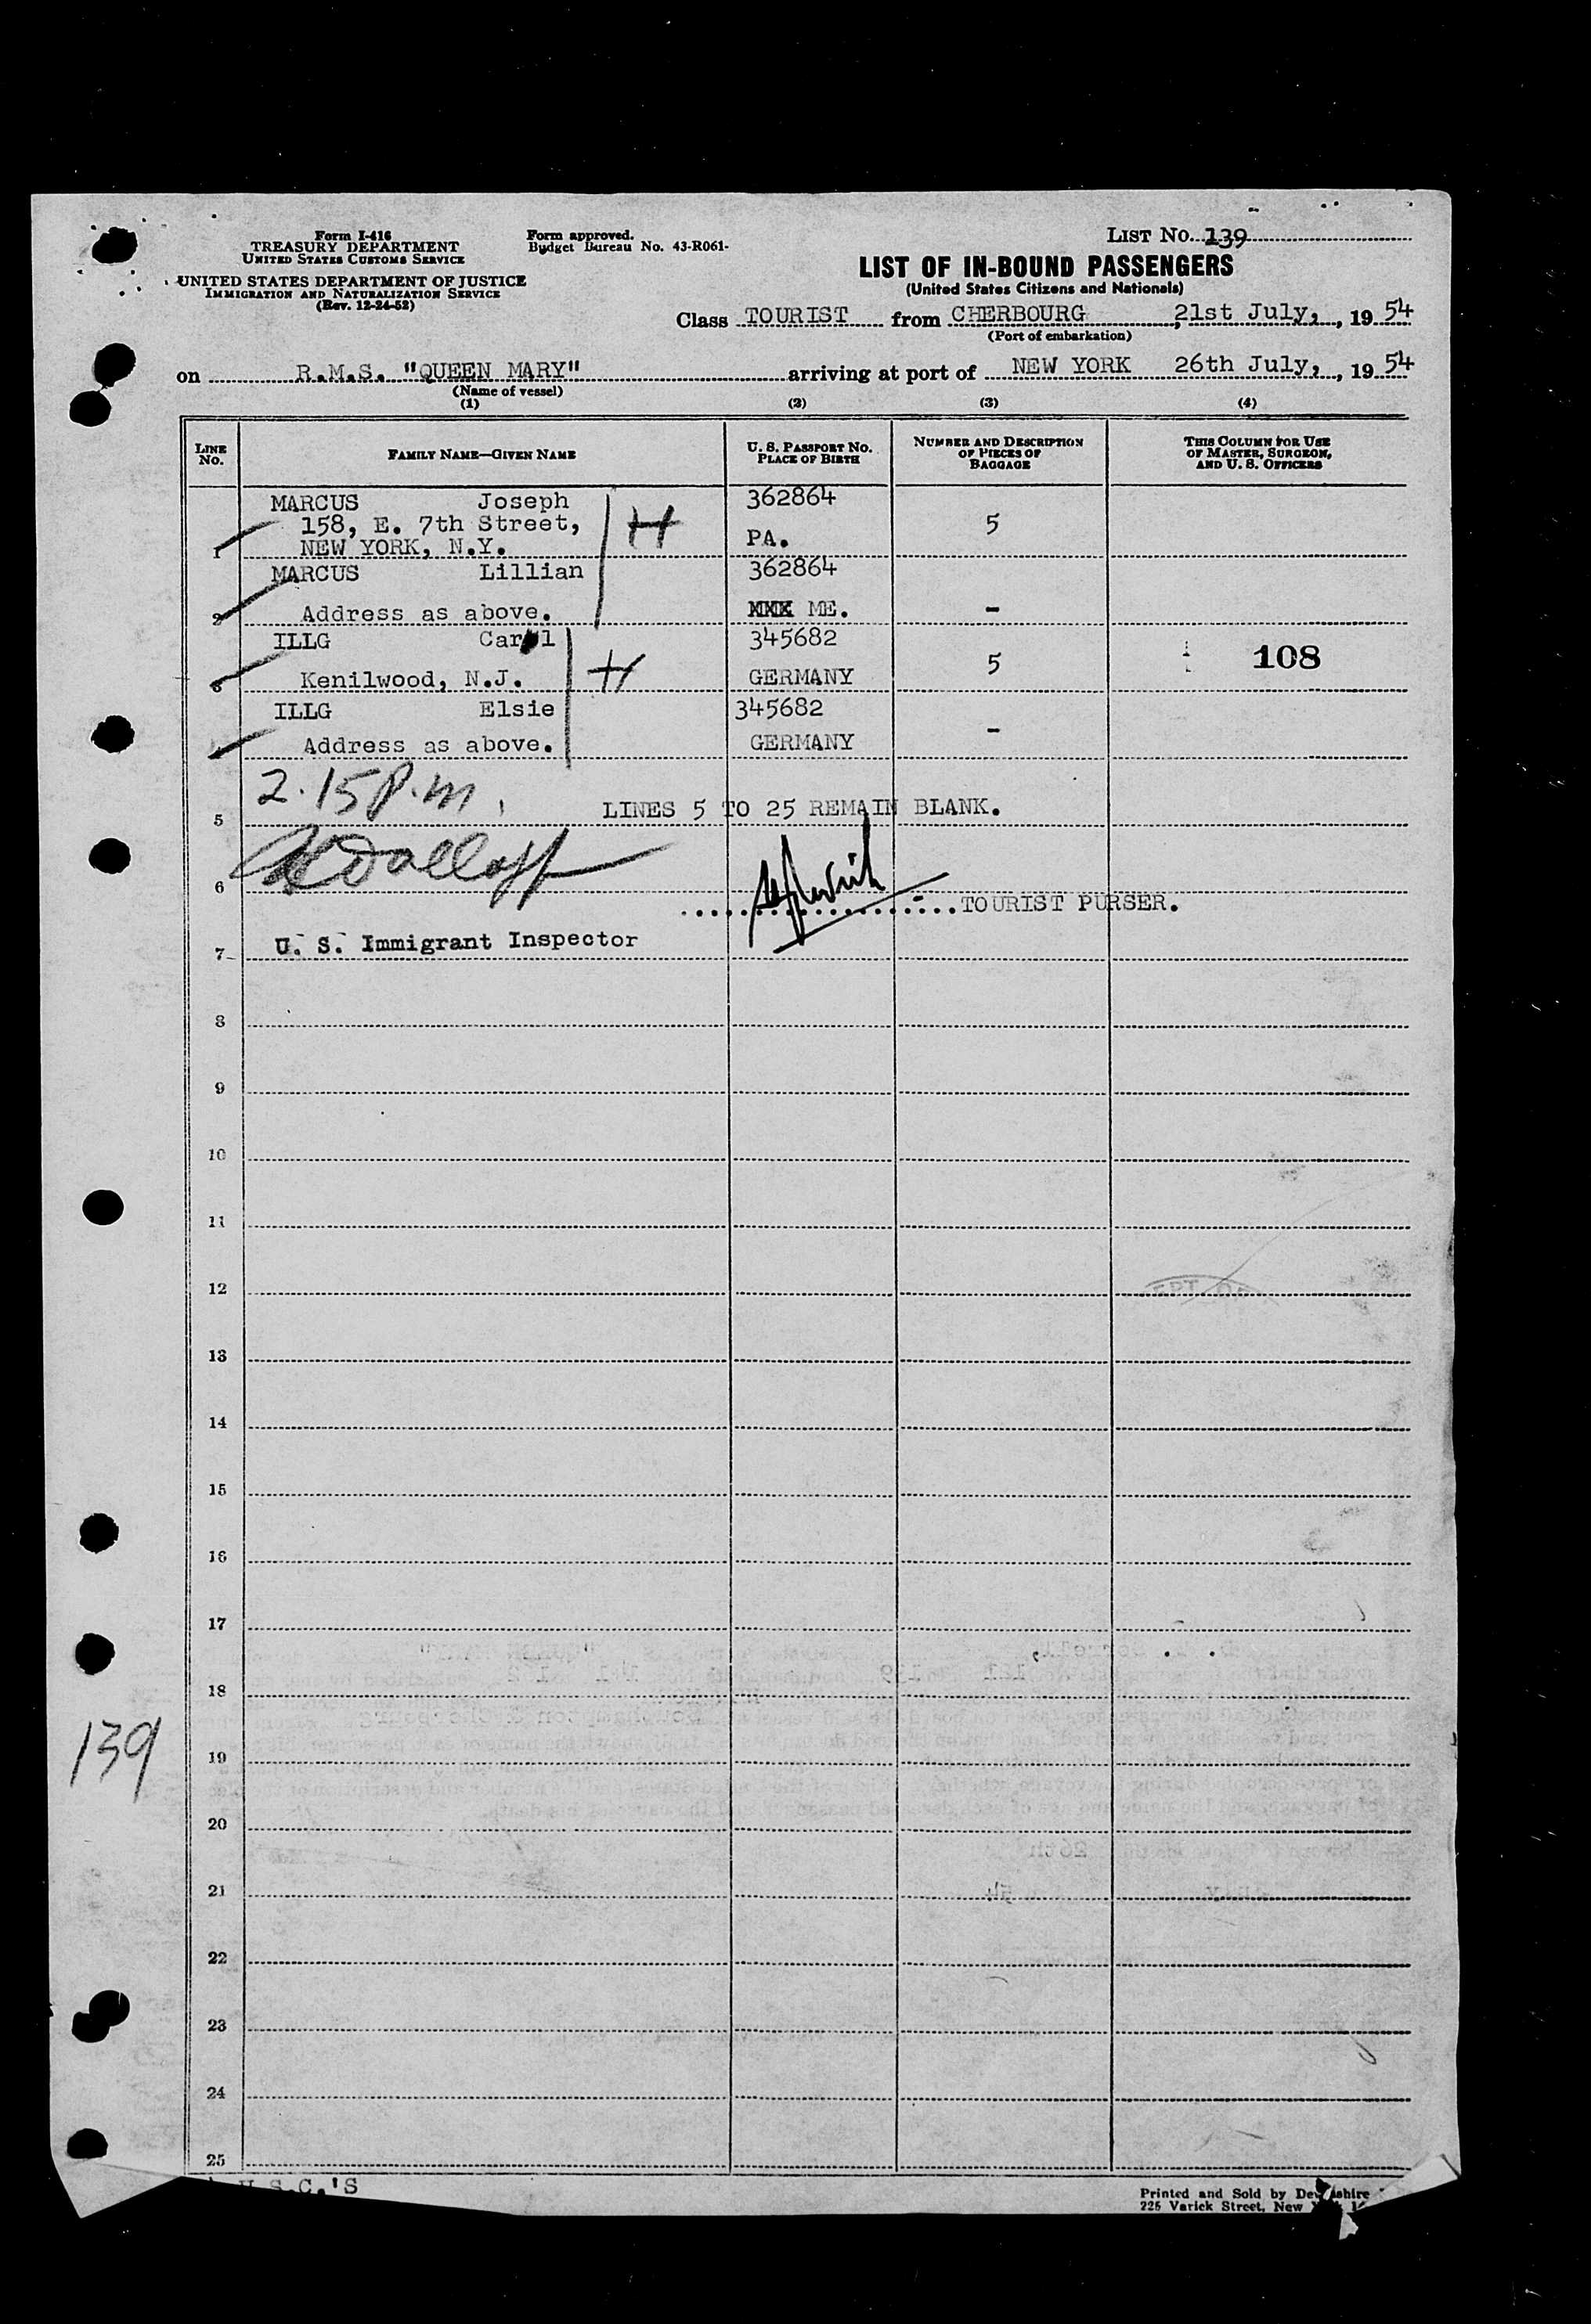 Form I-416
TREASURY DEPARTMENT
UNITED STATES CUSTOMS SERVICE
UNITED STATES DEPARTMENT OF JUSTICE
IMMIGRATION AND NATURALIZATION SERVICE
(Rev. 12-24-52)
Form approved.
Budget Bureau No. 43-R061-
LIST NO. 139
LIST OF IN-BOUND PASSENGERS
(United States Citizens and Nationals)
Class TOURIST from CHERBOURG, 21st July, , 19 54
(Port of embarkation)
on R.M.S. "QUEEN MARY" arriving at port of NEW YORK 26th July, , 19 54
(Name of vessel)
(1) (2) (3) (4)
LINE NO. FAMILY NAME—GIVEN NAME U. S. PASSPORT NO. PLACE OF BIRTH NUMBER AND DESCRIPTION OF PIECES OF BAGGAGE THIS COLUMN FOR USE OF MASTER, SURGEON, AND U. S. OFFICERS
MARCUS Joseph 362864
158, E. 7th Street, H 5
1 NEW YORK, N.Y. PA.
MARCUS Lillian 362864
2 Address as above. ME. -
ILLG 345682
3 Kenilwood, N.J. H GERMANY 5 108
ILLG Elsie 345682
Address as above. GERMANY -
2.15 P.m.
5 LINES 5 TO 25 REMAIN BLANK.
6
TOURIST PURSER.
7 U. S. Immigrant Inspector
8
9
10
11
12
13
14
15
16
17
18
139
19
20
21
22
23
24
25
U.S.C.'S
Printed and Sold by
225 Varick Street, New